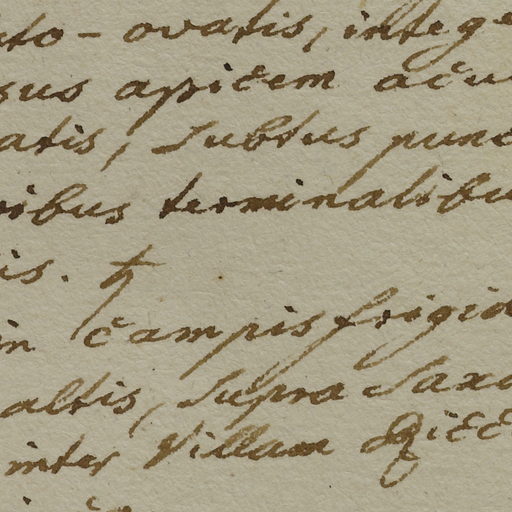 ato-ovatis, integ
sus apicem acu
atis, subtus punc
ribus terminalibu
is. ♄
in campis frigid
altis, supra saxa
inter Villam